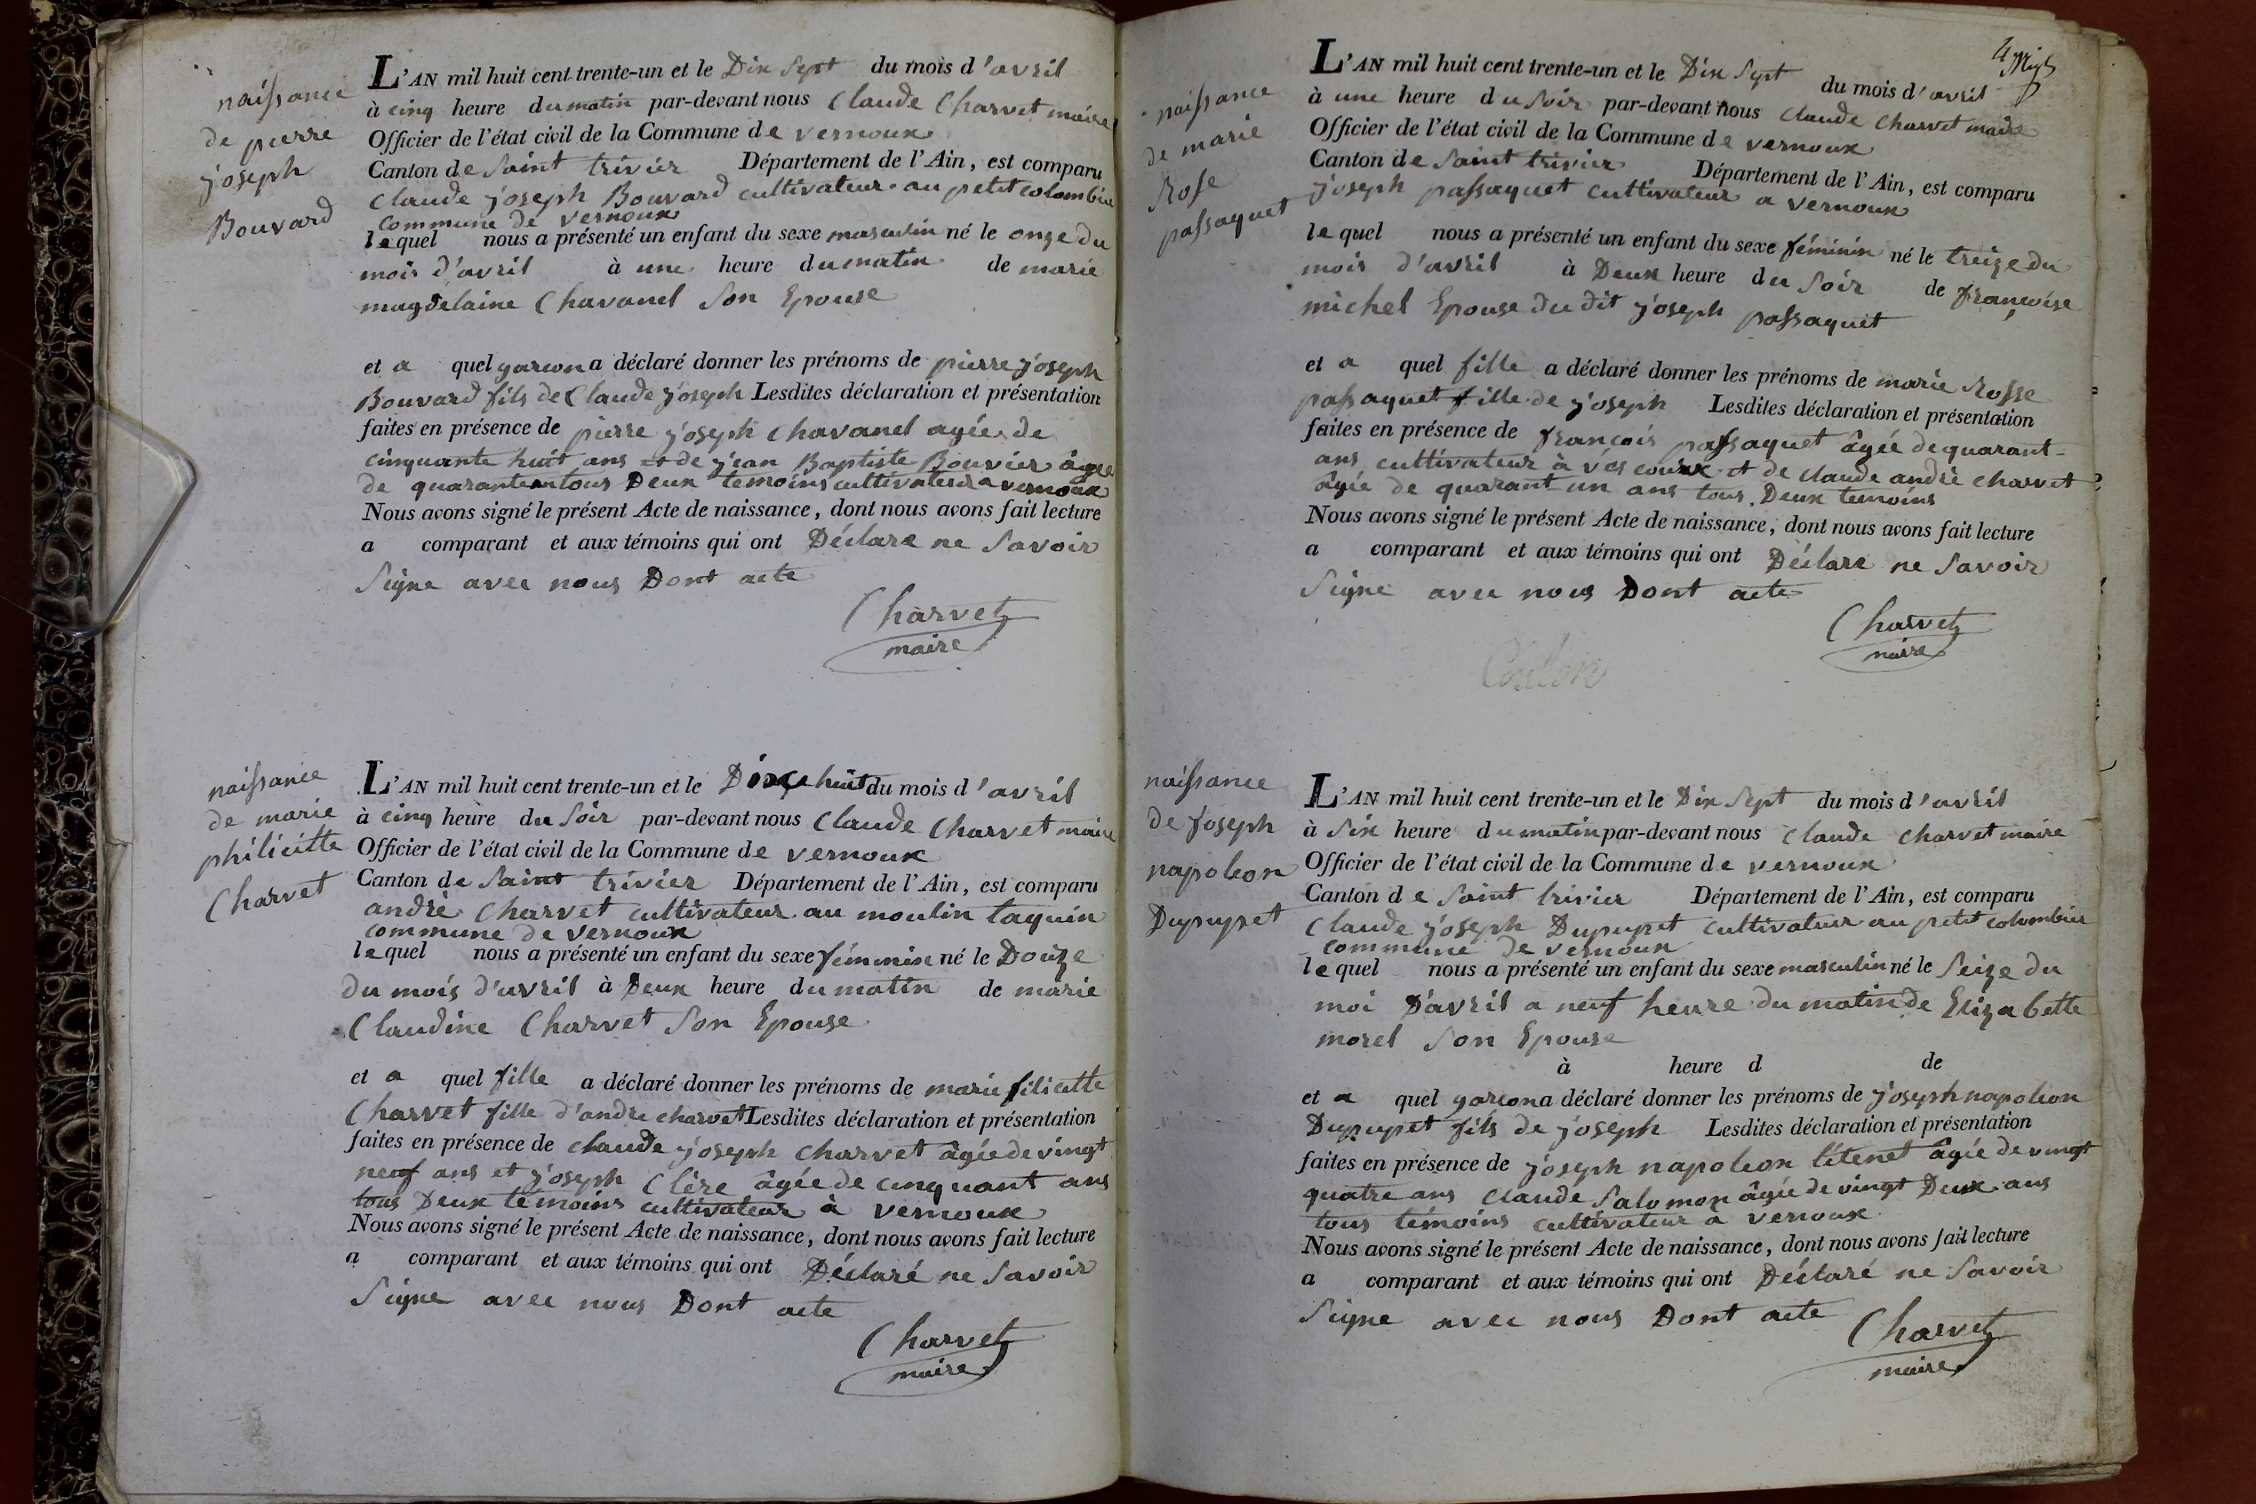 naissance
de pierre
joseph
Bouvard
L'AN mil huit cent trente-un et le Dix Sept du mois d'avril
à cinq heure du matin par-devant nous Claude Charvet maire
Officier de l'état civil de la Commune de vernoux
Canton de Saint trivier Département de l'Ain, est comparu
Claude joseph Bouvard cultivateur au petit colombier
commune de vernoux
lequel nous a présenté un enfant du sexe masculin né le onze du
mois d'avril à une heure du matin de marie
magdelaine Chavanel Son Epouse
et a quel garcon a déclaré donner les prénoms de pierre joseph
Bouvard fils de Claude joseph Lesdites déclaration et présentation
faites en présence de pierre joseph Chavanel agée de
cinquante huit ans et de jean Baptiste Bouvier âgee
de quarante an tous Deux temoins cultivateur a vernoux
Nous avons signé le présent Acte de naissance, dont nous avons fait lecture
a comparant et aux témoins qui ont Déclare ne Savoir
Signe avec nous Dont acte
Charvet
maire
naissance
de marie
philicitte
Charvet
L'AN mil huit cent trente-un et le Dixe huit du mois d'avril
à cinq heure du Soir par-devant nous Claude Charvet maire
Officier de l'état civil de la Commune de vernoux
Canton de Saint trivier Département de l'Ain, est comparu
andrè Charvet cultivateur au moulin taquin
commune de vernoux
lequel nous a présenté un enfant du sexe féminin né le Douze
du mois d'avril à Deux heure du matin de marie
Claudine Charvet Son Epouse
et a quel fille a déclaré donner les prénoms de marie filicitte
Charvet fille d'andre charvet Lesdites déclaration et présentation
faites en présence de claude joseph Charvet âgée de vingt
neuf ans et joseph Clère âgée de cinquant ans
tous Deux temoins cultivateur à vernoux
Nous avons signé le présent Acte de naissance, dont nous avons fait lecture
a comparant et aux témoins qui ont Déclaré ne Savoir
Signe avec nous Dont acte
Charvet
maire
4
naissance
de marie
Rose
passaquet
L'AN mil huit cent trente-un et le Dix Sept du mois d'avril
à une heure du Soir par-devant nous Claude Charvet maire
Officier de l'état civil de la Commune de vernoux
Canton de Saint trivier Département de l'Ain, est comparu
joseph passaquet cultivateur a vernoux
lequel nous a présenté un enfant du sexe féminin né le treize du
mois d'avril à Deux heure du Soir de françoise
michel Epouse du dit joseph passaquet
et a quel fille a déclaré donner les prénoms de marie Rosse
passaquet fille de joseph Lesdites déclaration et présentation
faites en présence de françois passaquet âgée de quarant-
ans cultivateur à vescourx et de claude andrè charvet
âgée de quarant un ans tous Deux temoins
Nous avons signé le présent Acte de naissance, dont nous avons fait lecture
a comparant et aux témoins qui ont Déclare ne Savoir
Signe avec nous Dont acte
Charvet
maire
naissance
de joseph
napoleon
Dupupet
L'AN mil huit cent trente-un et le Dix Sept du mois d'avril
à Six heure du matin par-devant nous Claude Charvet maire
Officier de l'état civil de la Commune de vernoux
Canton de Saint trivier Département de l'Ain, est comparu
Claude joseph Dupupet cultivateur au petit colombier
commune de vernoux
lequel nous a présenté un enfant du sexe masculin né le Seize du
moi D'avril a neuf heure du matin de Elizabette
morel Son Epouse
à heure d de
et a quel garcon a déclaré donner les prénoms de joseph napoleon
Dupupet fils de joseph Lesdites déclaration et présentation
faites en présence de joseph napoleon litenet âgée de vingt
quatre ans Claude Salomon âgée de vingt Deux ans
tous témoins cultivateur a vernoux
Nous avons signé le présent Acte de naissance, dont nous avons fait lecture
a comparant et aux témoins qui ont Déclaré ne Savoir
Signe avec nous Dont acte
Charvet
maire